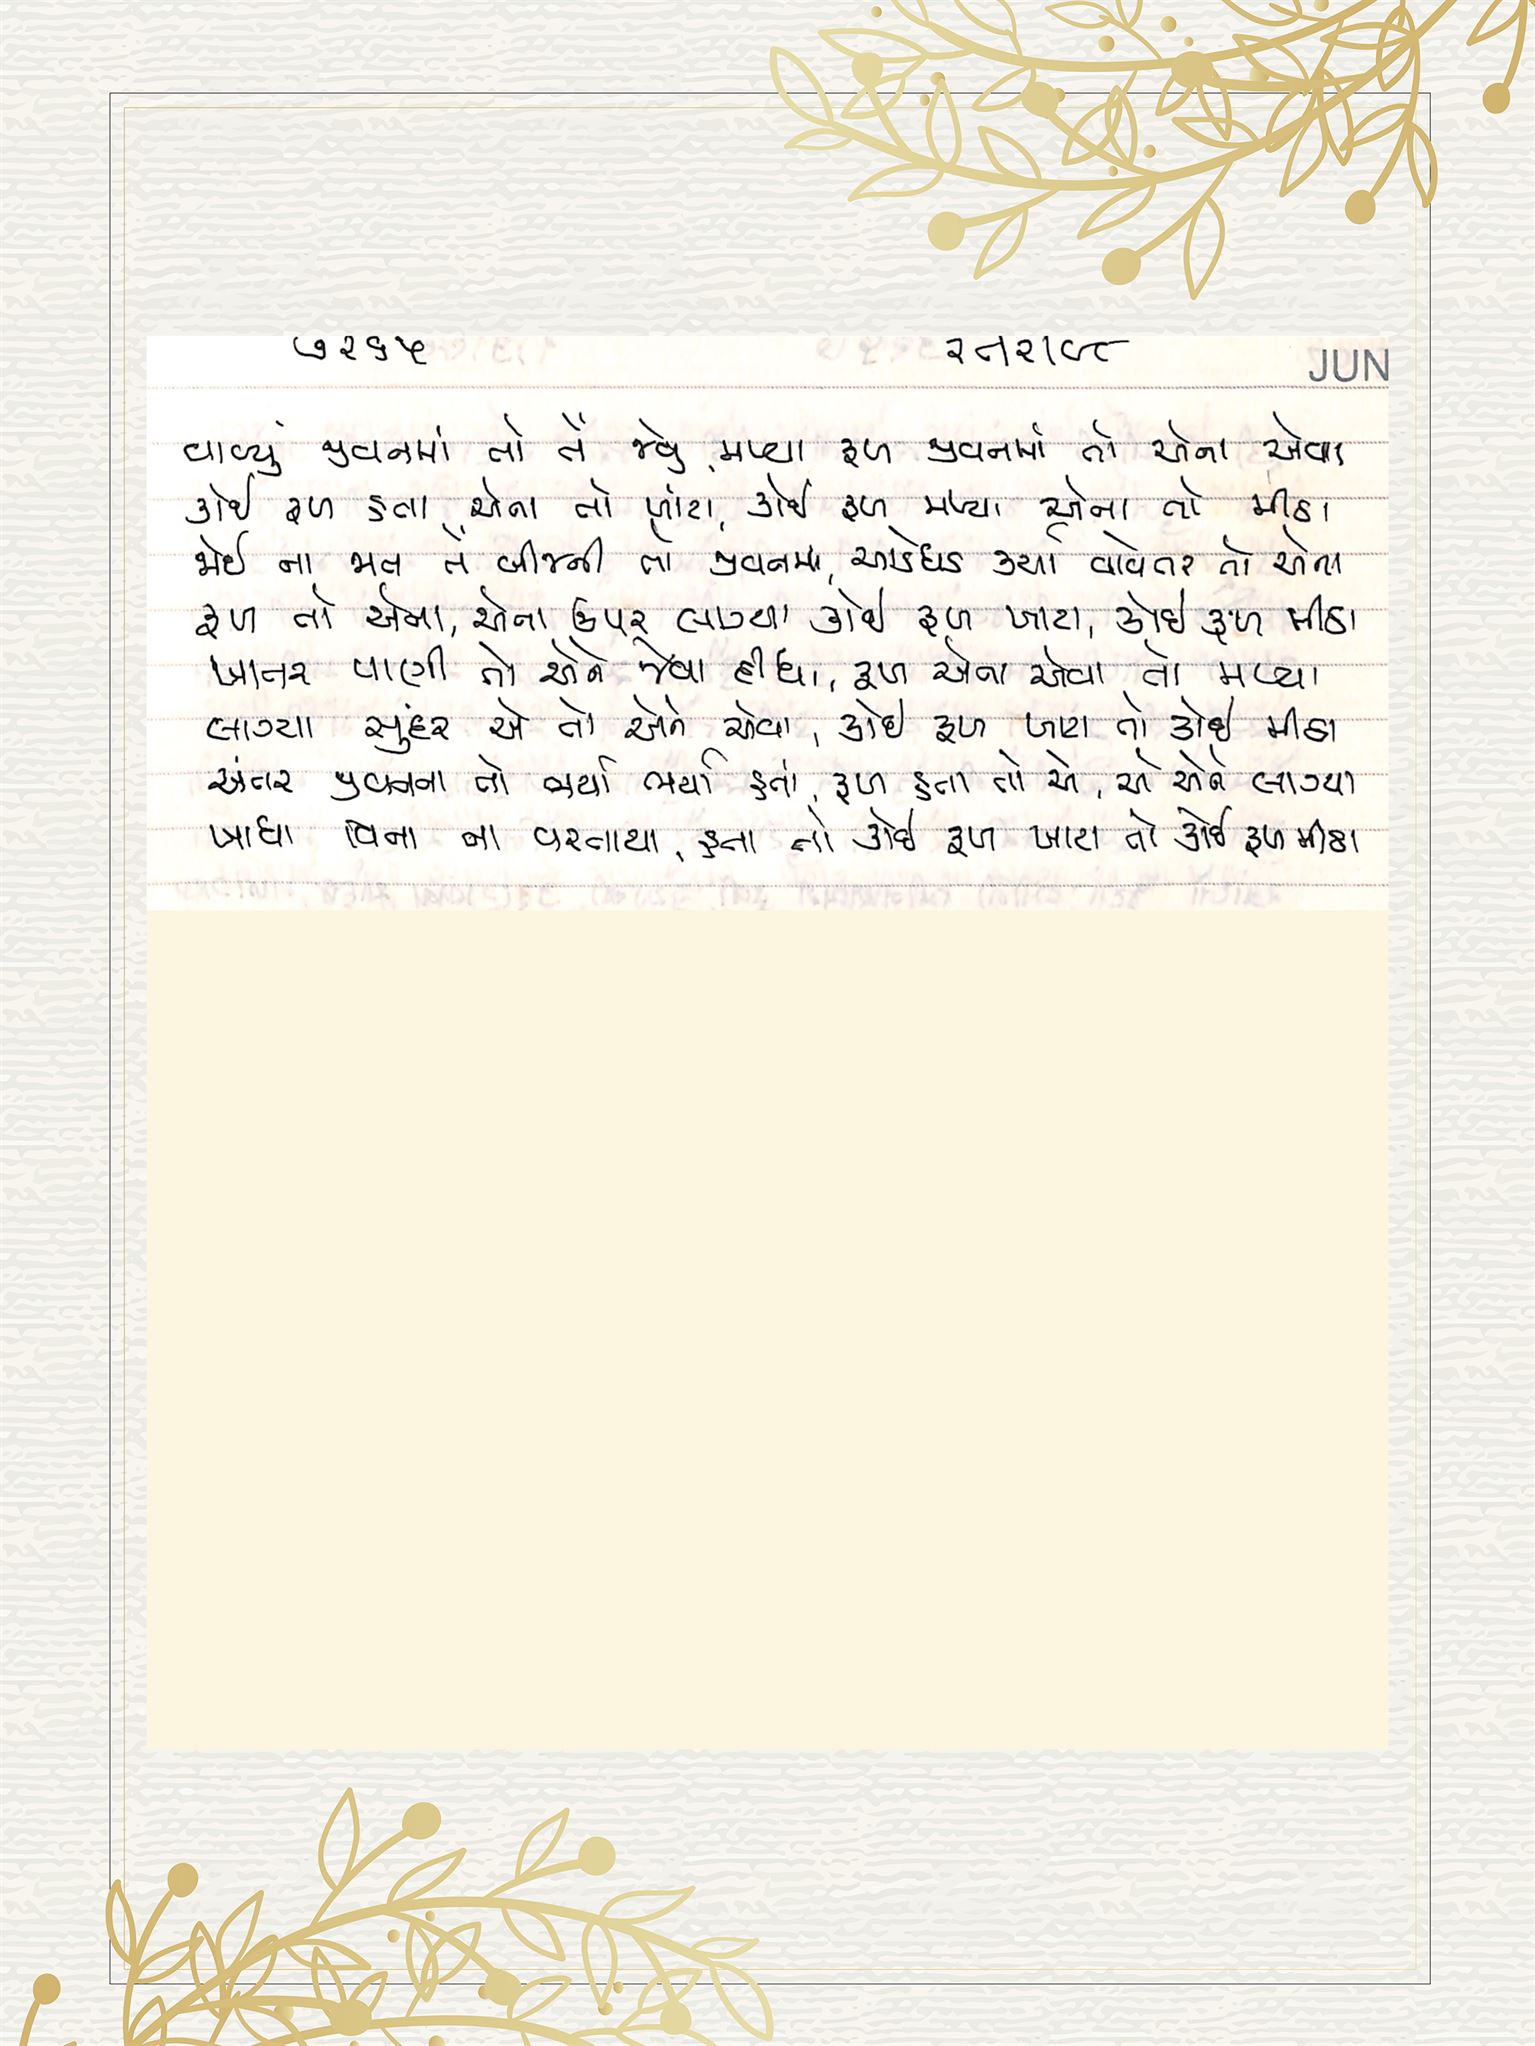 ૭૨૬૫ ૨૧૨ા૯૮ JUN
વાવ્યું જીવનમાં તો તેં જેવું, મળ્યા ફળ જીવનમાં તો એના એવા
કોઈ ફળ હતા એના તો ખાટા, કોઈ ફળ મળ્યા એના તો મીઠા
જોઈ ના જાત તેં બીજની તો જીવનમાં, આડેધડ કર્યા વાવેતર તો એના
ફળ તો એના, એના ઉપર લાગ્યા કોઈ ફળ ખાટા, કોઈ ફળ મીઠા
ખાતર પાણી તો એને જેવા દીધા, ફળ એના એવા તો મળ્યા
લાગ્યા સુંદર એ તો એને એવા, કોઈ ફળ ખાટા તો કોઈ મીઠા
અંતર જીવનના તો ભર્યા ભર્યા હતાં, ફળ હતા તો એ, એ એને લાગ્યા
ખાધા વિના ના વરતાયા, હતા તો કોઈ ફળ ખાટા તો કોઈ ફળ મીઠા